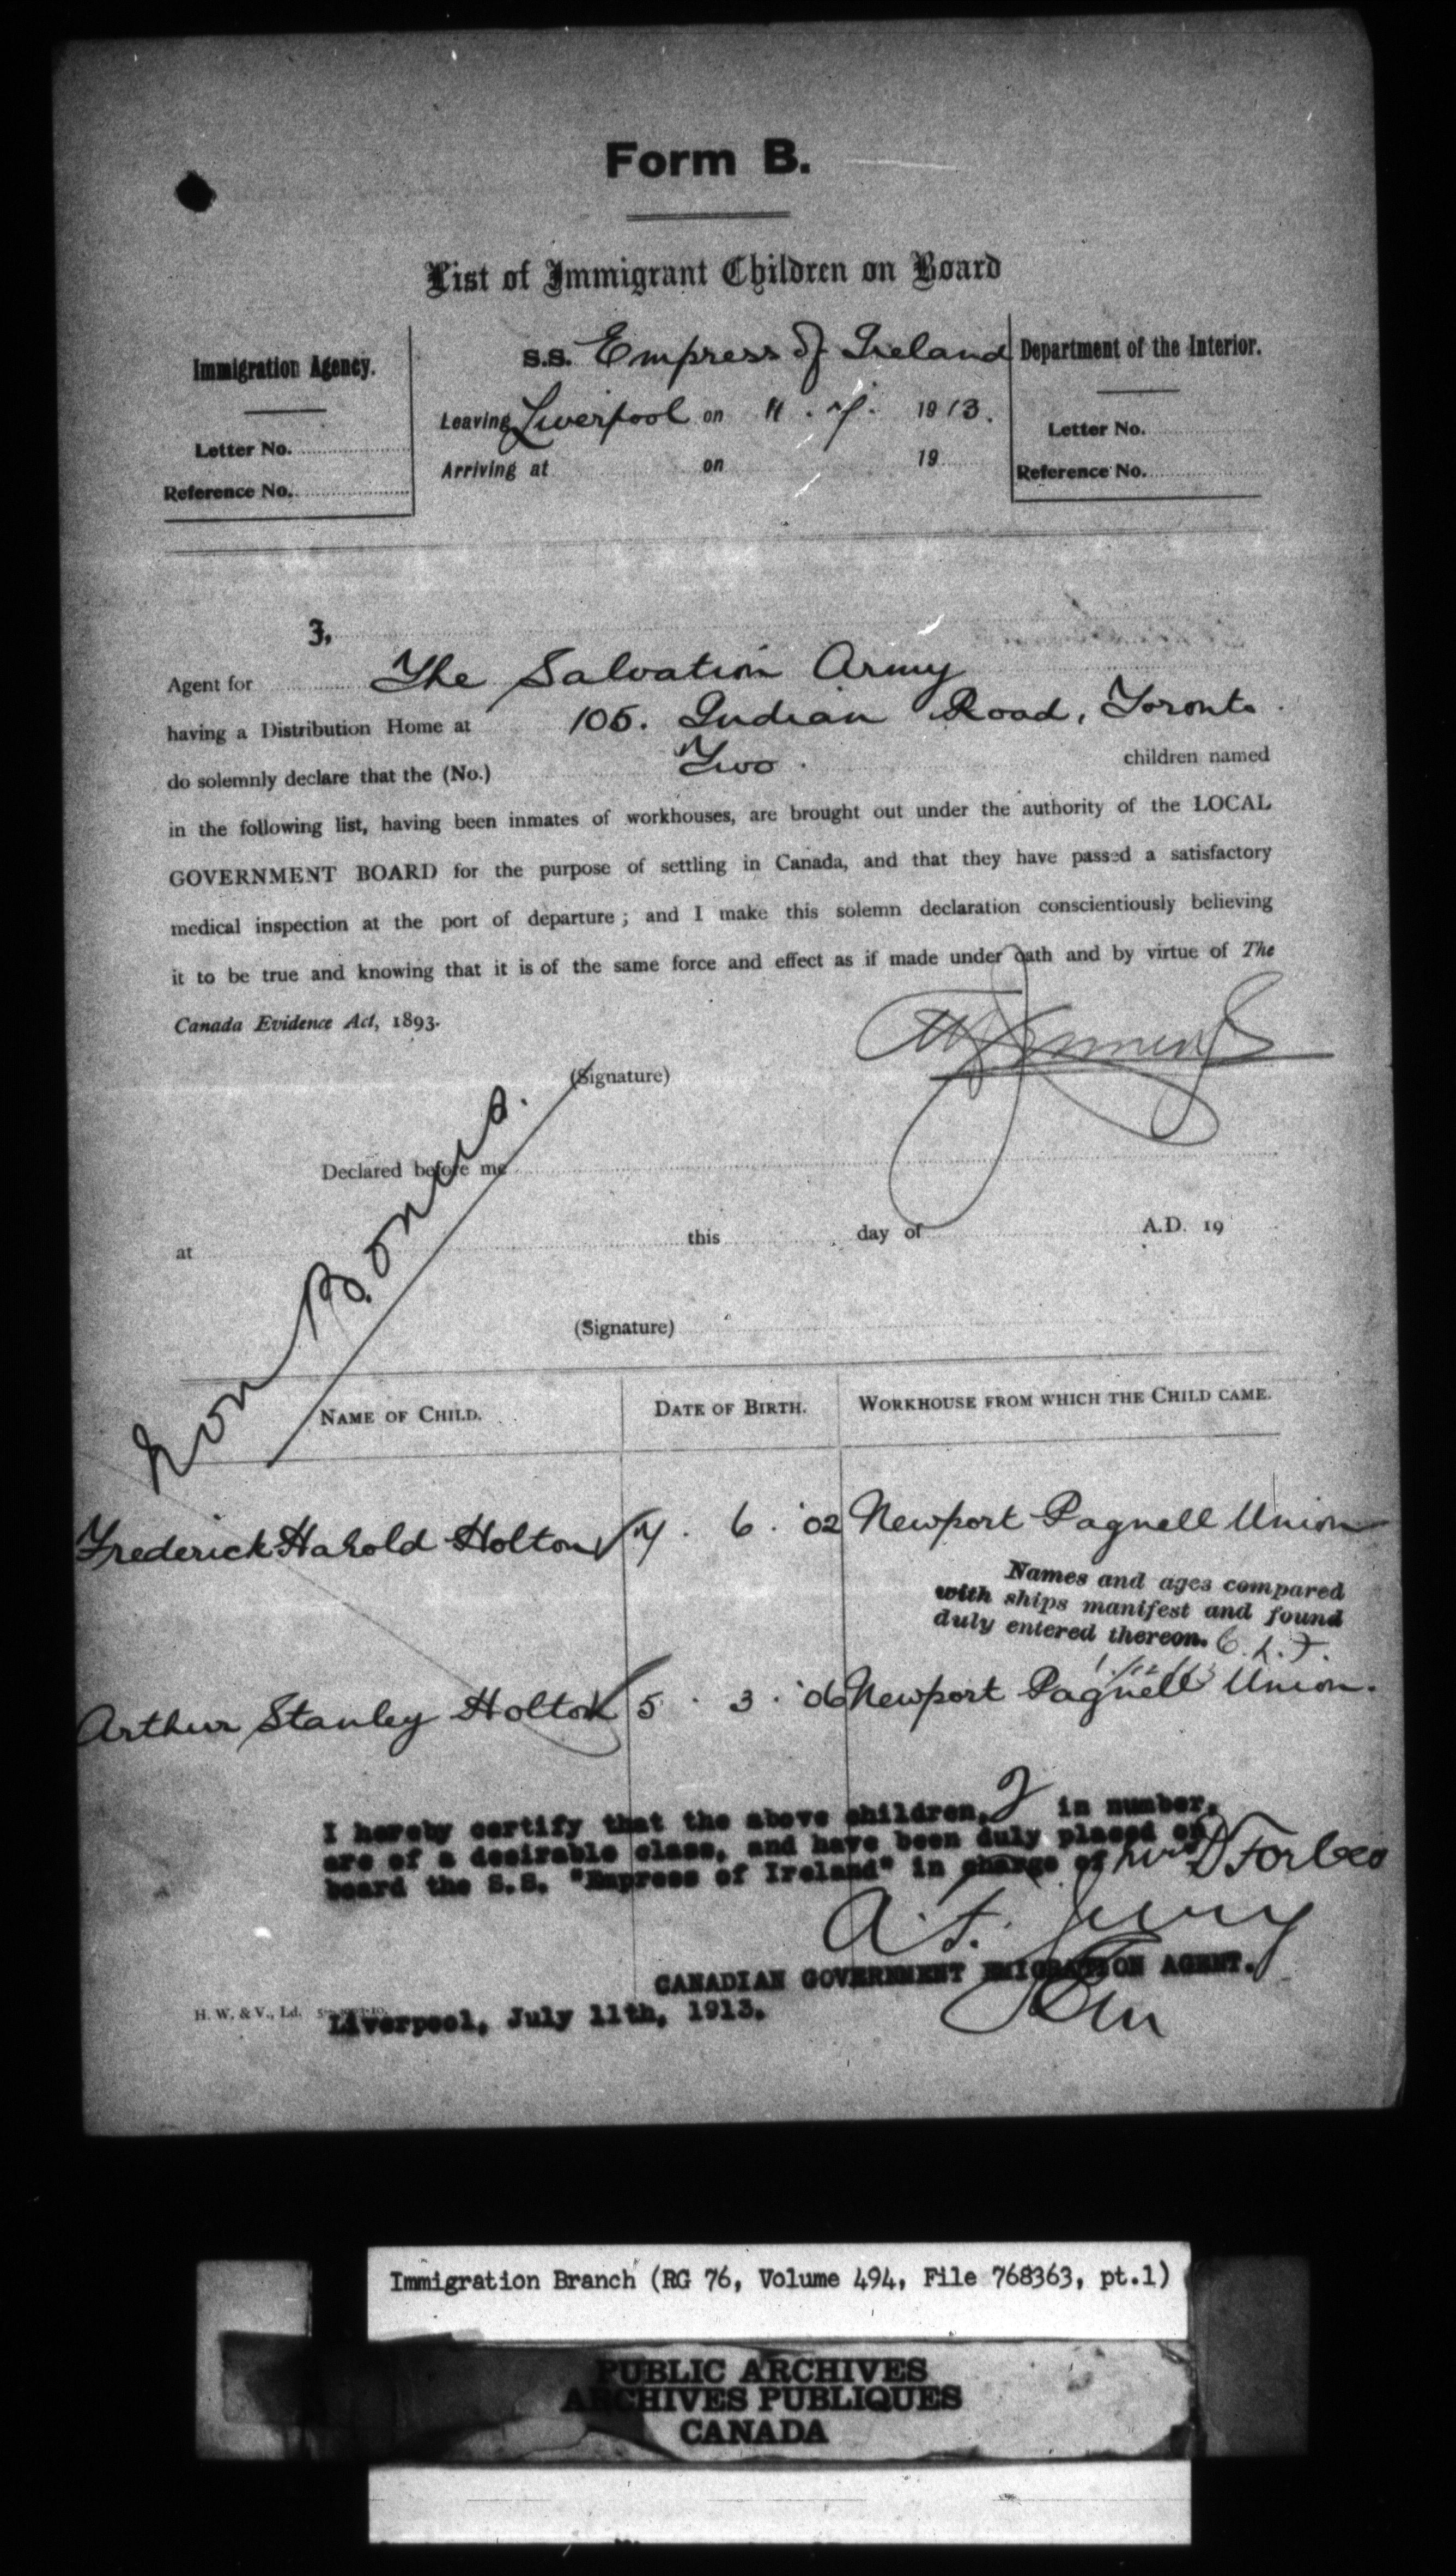 Form B.
List of Immigrant Children on Board
Immigration Agency.
Letter No.
Reference No.
S.S. Empress of Ireland
Leaving Liverpool on 11. 7. 1913.
Arriving at on 19
Department of the Interior.
Letter No.
Reference No.
3.
Agent for The Salvation Army
having a Distribution Home at 105. Indian Road, Toronto.
do solemnly declare that the (No.) Two. children named
in the following list, having been inmates of workhouses, are brought out under the authority of the LOCAL
GOVERNMENT BOARD for the purpose of settling in Canada, and that they have passed a satisfactory
medical inspection at the port of departure; and I make this solemn declaration conscientiously believing
it to be true and knowing that it is of the same force and effect as if made under oath and by virtue of The
Canada Evidence Act, 1893.
(Signature)
Declared before me
at this day of A.D. 19
(Signature)
Non Bonus.
NAME OF CHILD. DATE OF BIRTH. WORKHOUSE FROM WHICH THE CHILD CAME.
Frederick Harold Holton 7. 6. '02 Newport Pagnell Union
Names and ages compared
with ships manifest and found
duly entered thereon.
Arthur Stanley Holton 5. 3. '06 Newport Pagnell Union.
I hereby certify that the above children, 2 in number,
are of a desirable class, and have been duly placed on
board the S.S. "Empress of Ireland" in charge of Mrs D Forbes
CANADIAN GOVERNMENT EMIGRATION AGENT.
H. W. & V., Ld.
Liverpool, July 11th, 1913.
Immigration Branch (RG 76, Volume 494, File 768363, pt.1)
PUBLIC ARCHIVES
ARCHIVES PUBLIQUES
CANADA